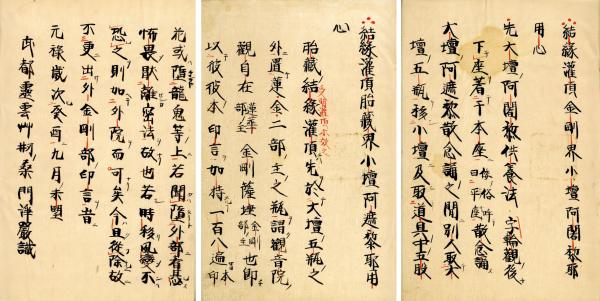 結緣灌頂金剛界小壇阿闍黎耶
用心
先大壇阿闍黎供養法字輪觀後
下座著干本座俗呼曰平座散念誦
大壇阿遮黎散念誦之間別人取大
壇五瓶移小壇及取道具干五股
結緣灌頂胎藏界小壇阿遮黎耶用
心
胎藏結緣灌頂先於大壇五瓶之
外置蓮金二部主之瓶謂觀音院
觀自在蓮華部主金剛薩埵金剛部主也即
以彼彼本印言加持一百八遍
花或墮龍鬼等上若聞墮外部者忽
怖畏歟離密法故也若時移風變不
恐之則如外院而可矣今且從除故
不更出外金剛部印言者
元祿歲次癸酉九月末盟
武都靈雲艸刱桑門淨嚴識